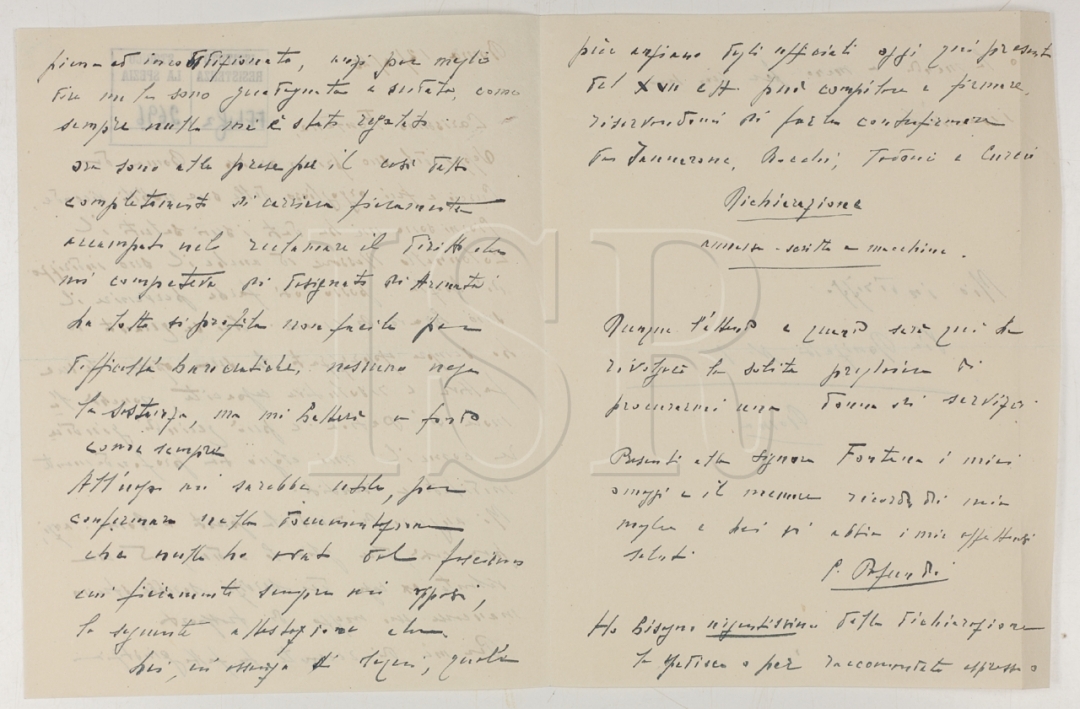 piena ed incondizionata, anzi per meglio
dire me la sono guadagnata e sudata, come
sempre nulla mi è stato regalato.
ora sono alle prese per il così detto
completamento di carriera fieramente
accampato nel reclamare il diritto che
mi competeva di designato di Armata
La lotta si profila non facile per
difficoltà burocratiche, nessuno nega
la sostanza, ma mi batterò a fondo
come sempre
All'uopo mi sarebbe utile, per
confermare nella documentazione
che nulla ho avuto dal fascismo
cui fieramente sempre mi opposi,
la seguente attestazione che
Lei, in assenza di
più anziano degli ufficiali oggi qui presenti
del XVII può compilare e firmare,
riservandomi di farla controfirmare
da Jannarone, e
Dichiarazione
annessa - scritta a macchina.
Dunque l'attendo e quando sarà qui Le
rivolgerò la solita preghiera di
procurarmi una donna di servizio.
Presenti alla Signora Fontana i miei
omaggi e il memore ricordo di mia
moglie e Lei si abbia i miei affettuosi
saluti
Ho bisogno urgentissimo della dichiarazione
la spedisca per raccomandata espresso
ISR
RESISTENZA
LA SPEZIA